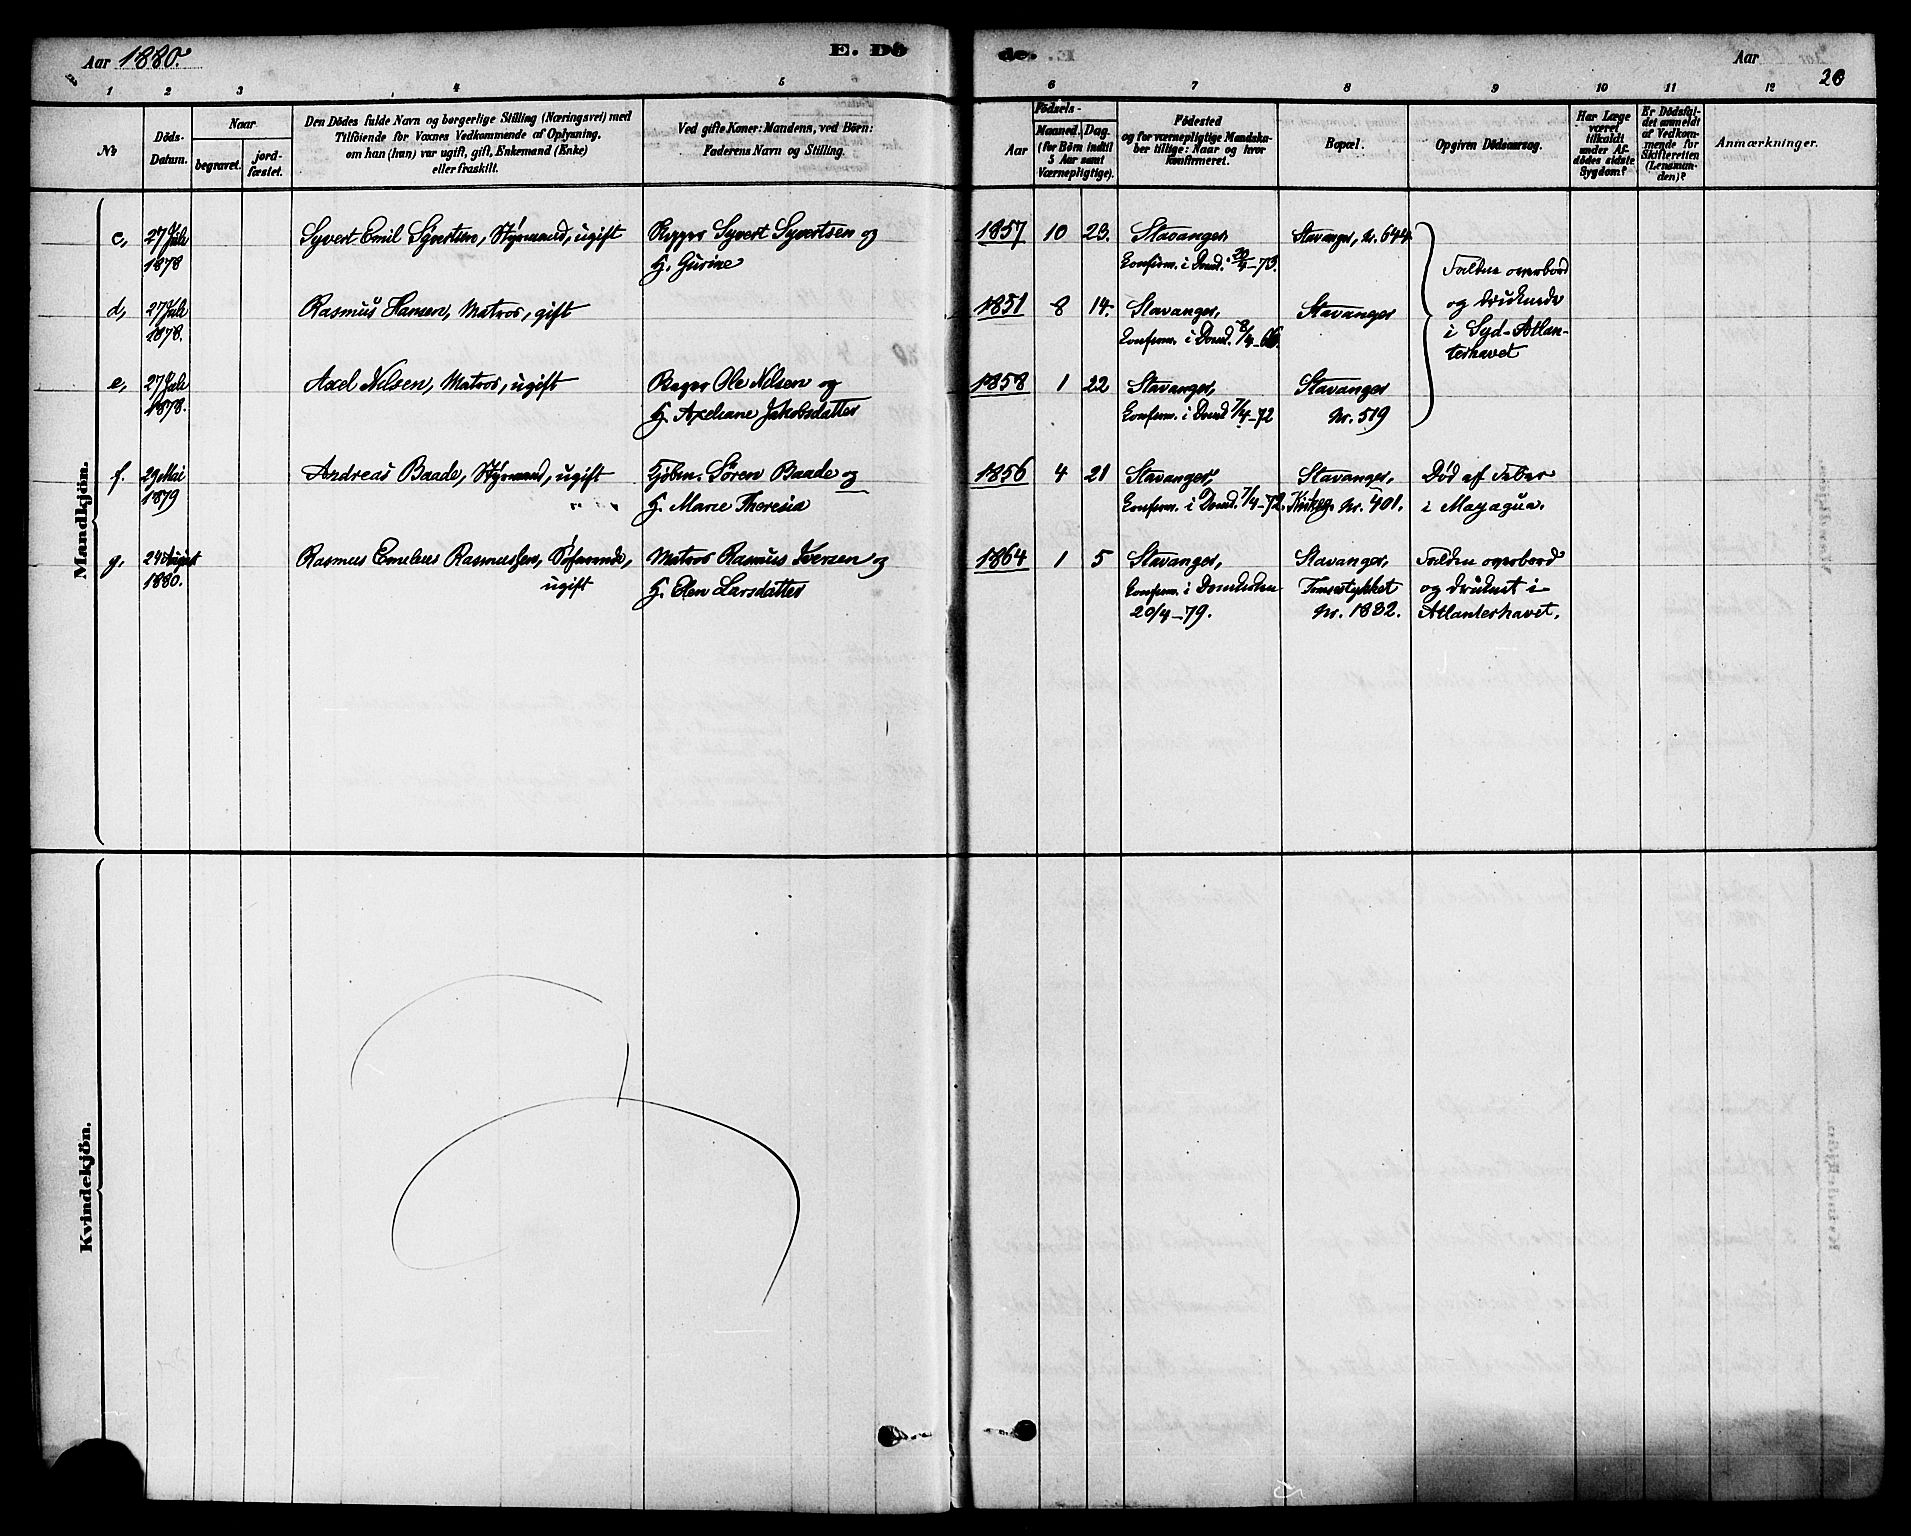 Aar 1880.
E. Dö
de.
Aar
20
1 2 3 4 5 6 7 8 9 10 11 12
No
Döds-
Datum.
Naar
begravet.
jord-
fæstet.
Den Dödes fulde Navn og borgerlige Stilling (Næringsvei) med
Tilföiende for Voxnes Vedkommende af Oplysning,
om han (hun) var ugift, gift, Enkemand (Enke)
eller fraskilt.
Ved gifte Koner: Mandens, ved Börn:
Faderens Navn og Stilling.
Födsels-
Aar
Maaned.
Dag.
(for Börn indtil
5 Aar samt
Værnepligtige).
Födested
og for værnepligtige Mandska-
ber tillige: Naar og hvor
konfirmeret.
Bopæl.
Opgiven Dödsaarsag.
Har Læge
været
tilkaldt
under Af-
dödes sidste
Sygdom?
Er Dödsfal-
det anmeldt
af Vedkom-
mende for
Skifteretten
(Lensman-
den)?
Anmærkninger.
Mandkjön.
c, 27 Juli Syvert Emil Syvertsen, Styrmand, ugift Syvert Syvertsen og 1857 10 23. Stavanger, Stavanger, Nr. 644
1878 H. Gurine Konfirm. i Domk. 20/4-73.
Falden overbord
d, 27 Juli Rasmus Hansen, Matros, gift 1851 8 14. Stavanger, Stavanger og druknede
1878. Konfirm. i Domk. 8/4-66. i Syd-Atlan-
terhavet
e, 27 Juli Axel Nilsen, Matros, ugift Ole Nilsen og 1858 1 22 Stavanger, Stavanger
1878. H. Axeliane Jakobsdatter Konfirm. i Domk 7/4-72 Nr. 519
f. 29 Mai Andreas Baade, Styrmand, ugift Kjöbm. Sören Baade og 1856 4 21 Stavanger, Stavanger, Död af Feber
1879 H. Marie Theresia Konfirm. i Domk. 7/4-72. Kirkeg. Nr. 401. i Mayagua.
g, 24 August Rasmus Cornelius Rasmussen, Söfarende, Matros Rasmus Iversen og 1864 1 5 Stavanger, Stavanger, Falden overbord
1880. ugift H. Elen Larsdatter Konfirm. i Domkirken og druknet i
20/4-79. Nr. 1832. Atlanterhavet.
Kvindekjön.